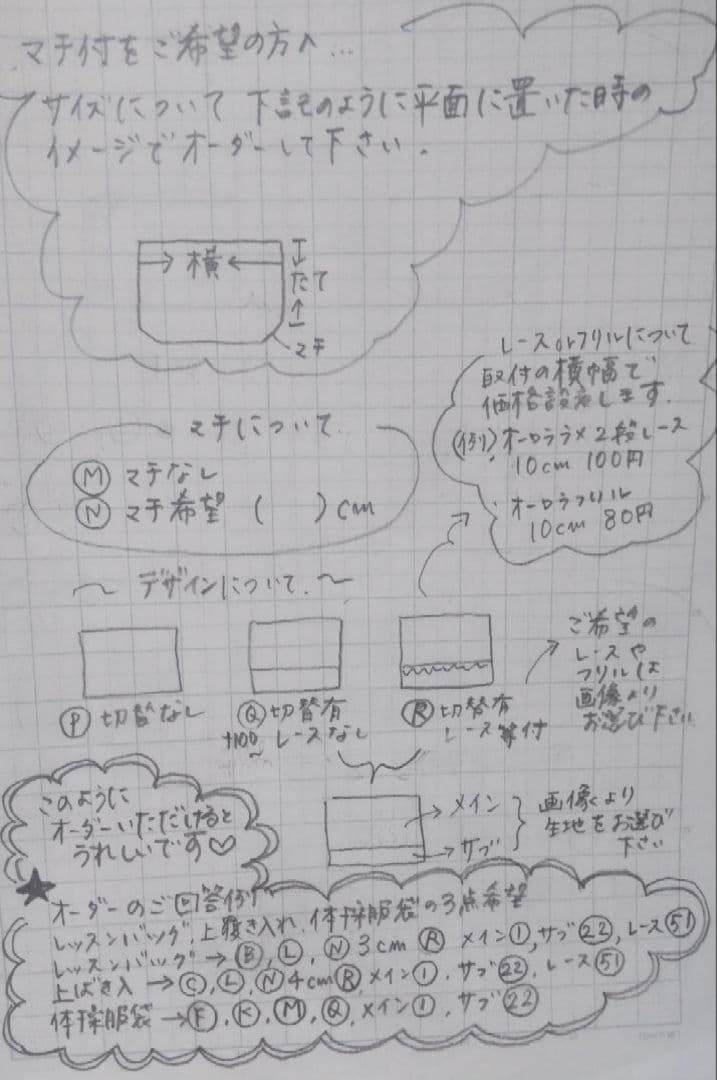 マチ付をご希望の方へ…
サイズについて 下記のように平面に置いた時の
イメージでオーダーして下さい.
横
たて
マチ
レースorフリルについて
取付の横幅で
価格設定します.
(例)・オーロララメ2段レース
10cm 100円
・オーロラフリル
10cm 80円
マチについて
Ⓜ マチなし
Ⓝ マチ希望 ( )cm
〜 デザインについて. 〜
Ⓟ切替なし
Ⓠ切替有
+100〜 レースなし
Ⓡ切替有
レース等付
ご希望の
レースや
フリルは
画像より
お選び下さい
メイン
サブ
画像より
生地をお選び
下さい
このように
オーダーいただけると
うれしいです♡
★
オーダーのご回答例
レッスンバッグ、上履き入れ、体操服袋の3点希望
レッスンバッグ→Ⓑ、Ⓛ、Ⓝ3cm Ⓡ メイン①、サブ㉒、レース㊿①
上ばき入→Ⓒ、Ⓛ、Ⓝ4cmⓇ、メイン①、サブ㉒、レース㊿①
体操服袋→Ⓕ、Ⓚ、Ⓜ、Ⓠ、メイン①、サブ㉒